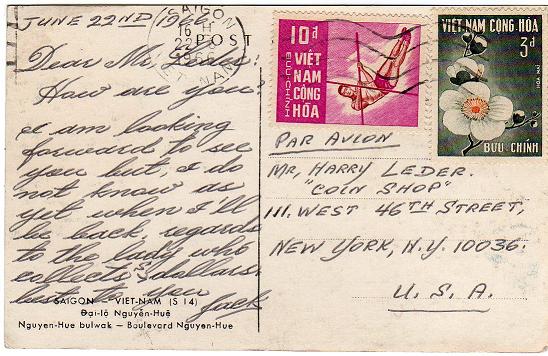 JUNE 22ND 1966.
Dear Mr. Leder:
How are you?
I am looking
forward to see
you but, i do
not know as
yet when I'll
be back, regards
to the lady who
collects dollars.
best to you
Jack
SAIGON VIET-NAM (S 14)
Đại-lộ Nguyễn-Huệ
Nguyen-Hue bulwak — Boulevard Nguyen-Hue
POST
SAIGON
16 H
22
1966
VIET-NAM
10đ
VIỆT
NAM
CỘNG
HÒA
BƯU-CHÍNH
VIỆT-NAM CỘNG-HÒA
3đ
BƯU CHÍNH
PAR AVION
MR, HARRY LEDER.
"COIN SHOP"
111. WEST 46TH STREET,
NEW YORK, N.Y. 10036.
U. S. A.